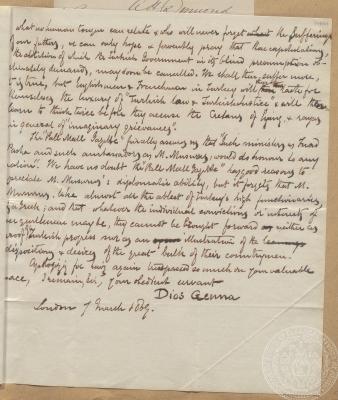 what no human tongue can relate & who will never forget the sufferings
of our fathers, we can only hope & fervently pray that these capitulations,
the abolition of which the Turkish Government in its blind presumption so
demands, may soon be cancelled. We shall then suffer more,
but Englishmen & Frenchmen in Turkey will then taste for
themselves the luxury of Turkish law & Turkish justice & will
learn to think twice before they accuse the Cretans of lying, & rayas
in general of "imaginary grievances".
The "Pall Mall Gazette" finally assures us that "Such ministers as Fuad
Pasha and such ambassadors as M. Musurus, would do honour to any
nation". We have no doubt the "Pall Mall Gazette" has good reasons to
appreciate M. Musurus's diplomatic ability, but it forgets that M.
Musurus, like almost all the ablest of Turkey's high functionaries,
is a Greek; and that whatever the individual convictions or interests of
gentlemen may be, they cannot be brought forward neither as
proof of Turkish progress nor as an illustration of the
dispositions & desires of the great bulk of their countrymen.
Apology for having again trespassed so much on your valuable
space, I remain, Sir, your obedient servant
London 7 March 1869.